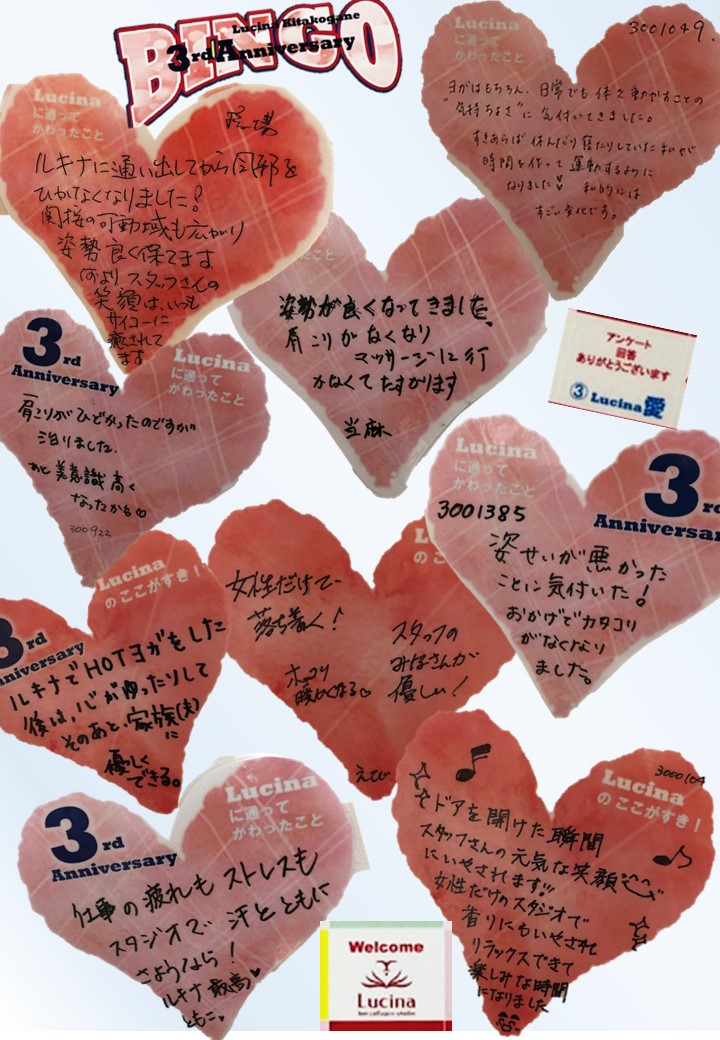 BINGO
Lucina Kitakogane
3rd Anniversary
3001049.
ヨガはもちろん、日常でも体を動かすことの
"気持ちよさ"に気付いてきました。
すきあらば休んだり寝たりしていた私が
時間を作って運動するように
なりました♡ 私的には
すごい変化です。
Lucina
に通って
かわったこと
Lucina
に通って
かわったこと
ルキナに通い出してから風邪を
ひかなくなりました!
関接の可動域も広がり
姿勢良く保てます
何よりスタッフさんの
笑顔は、いつも
サイコーに
癒されて
ます
姿勢が良くなってきました。
肩こりがなくなり
マッサージに行
かなくてたすかります
当麻
アンケート
回答
ありがとうございます
3 Lucina愛
3rd
Anniversary
Lucina
に通って
かわったこと
肩こりがひどかったのですが
治りました。
あと美意識高く
なったかも♡
300922
Lucina
に通って
かわったこと
3rd
Anniversar
3001385
姿せいが悪かった
ことに気付いた!
おかげでカタコリ
がなくなり
ました。
Lucina
のここがすき!
3rd
Anniversary
ルキナでHOTヨガをした
後は、心がゆったりして
そのあと、家族(夫)
に
優しく
できる。
女性だけで
落ち着く!
ホッコリ
暖かくなる。
スタッフの
みなさんが
優しい!
えび
3rd
Anniversary
Lucina
に通って
かわったこと
仕事の疲れもストレスも
スタジオで汗とともに
さようなら!
ルキナ最高♥
ともこ。
3000104
Lucina
のここがすき!
ドアを開けた瞬間
スタッフさんの元気な笑顔
にいやされます!!!
女性だけのスタジオで
香りにもいやされ
リラックスできて
楽しみな時間
になりました
Welcome
Lucina